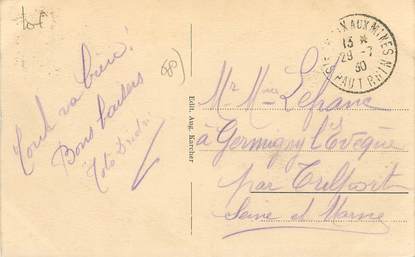 Tout va bien!
Bons baisers
Toto
Edit. Aug. Karcher
AUX MINES
13 *
29-7
30
HAUT RHIN
Mr Mme Lefranc
à Germigny l'Evèque
par Trilport
Seine et Marne